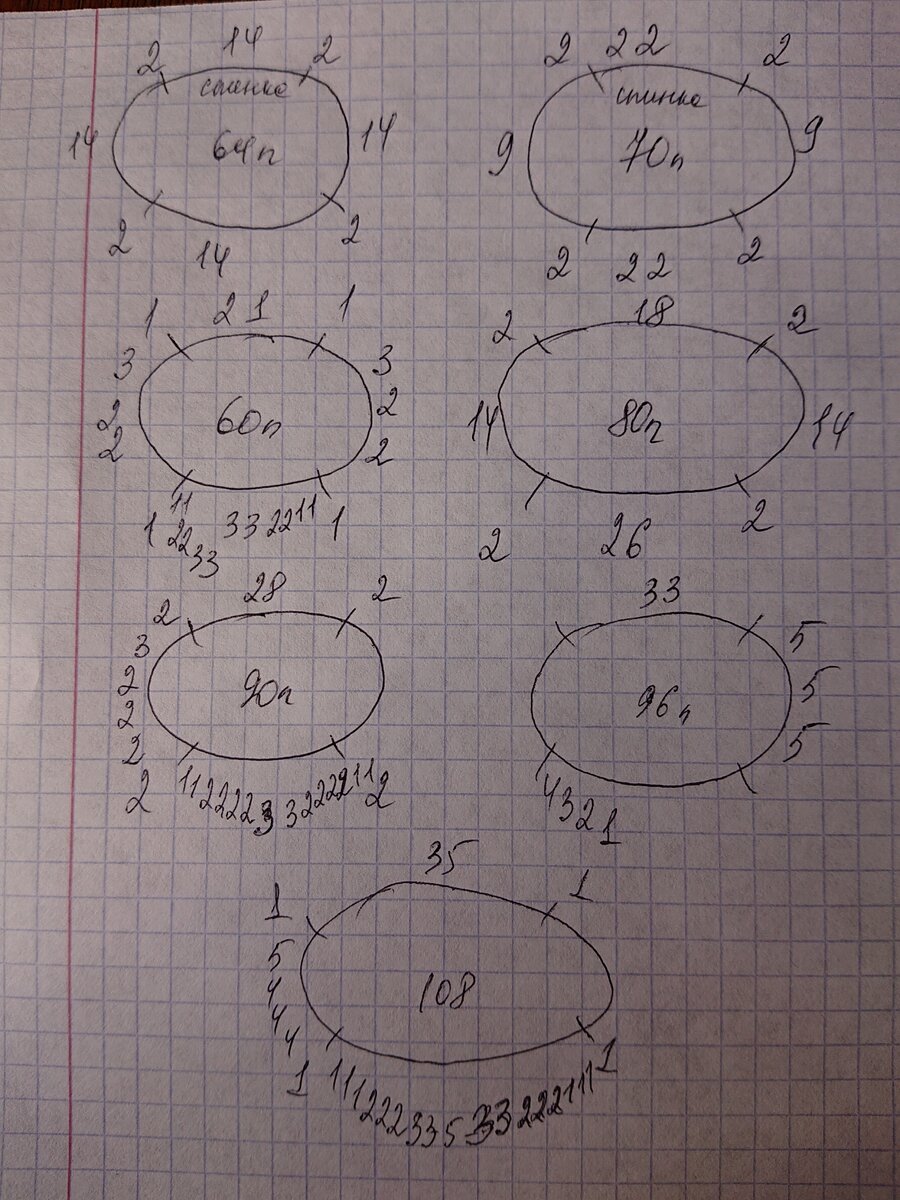 2 14 2
спинка
14 64п 14
2 14 2
2 22 2
спинка
9 70п 9
2 22 2
1 21 1
3 3
2 60п 2
2 2
1 11 22 33 33 22 11 1
2 18 2
14 80п 14
2 26 2
2 28 2
3
2 90п
2
2
2 11 2222 3 3 2222 11 2
33
5
96п 5
5
4321
35
1 1
5
4 108
4
4
1 111 222 33 5 33 222 111 1